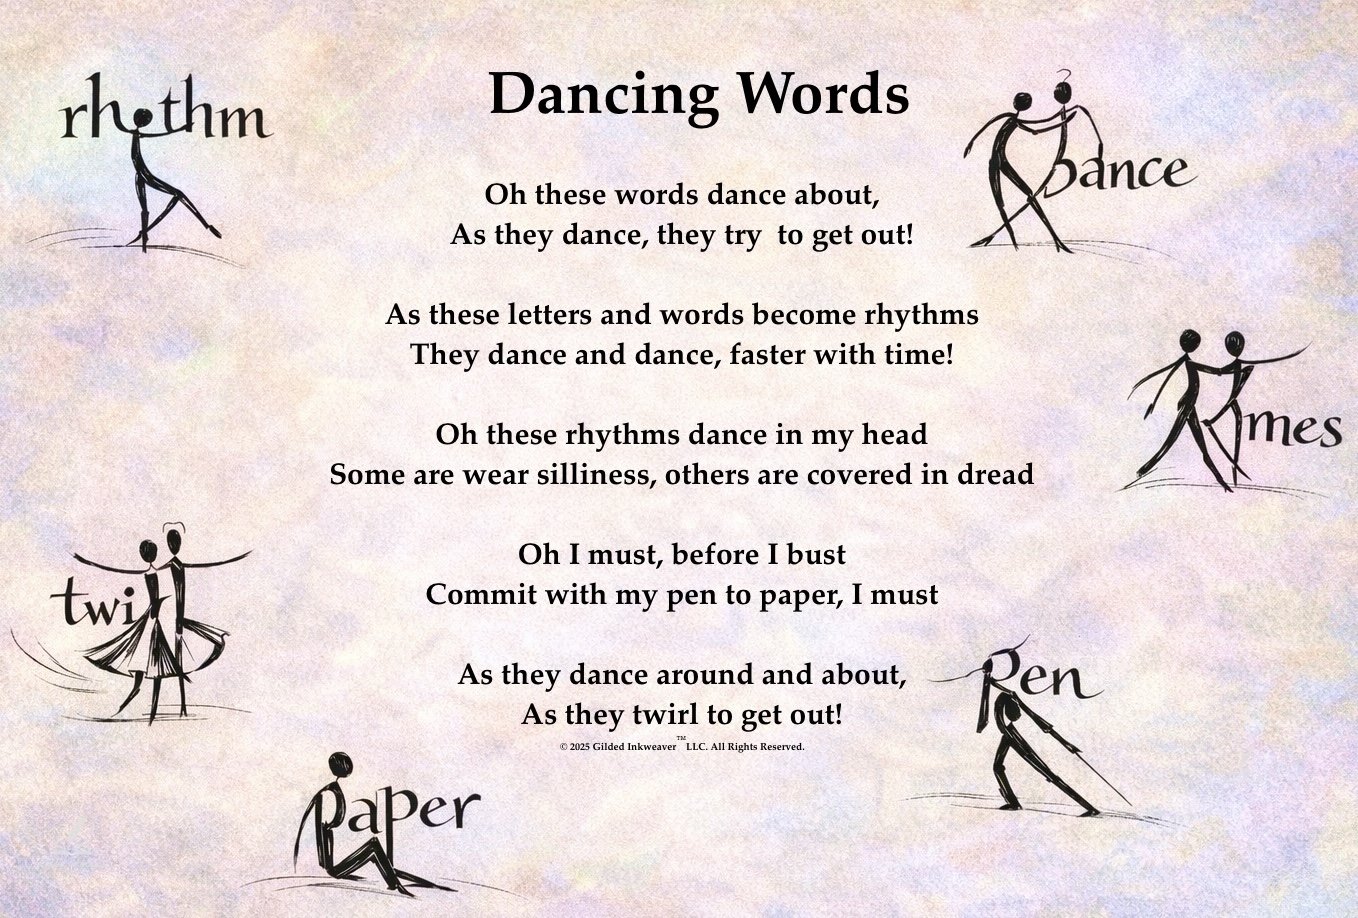 Dancing Words
rhythm
Dance
Oh these words dance about,
As they dance, they try  to get out!
As these letters and words become rhythms
They dance and dance, faster with time!
mes
Oh these rhythms dance in my head
Some are wear silliness, others are covered in dread
Oh I must, before I bust
Commit with my pen to paper, I must
twirl
As they dance around and about,
As they twirl to get out!
Pen
© 2025 Gilded Inkweaver™ LLC. All Rights Reserved.
paper